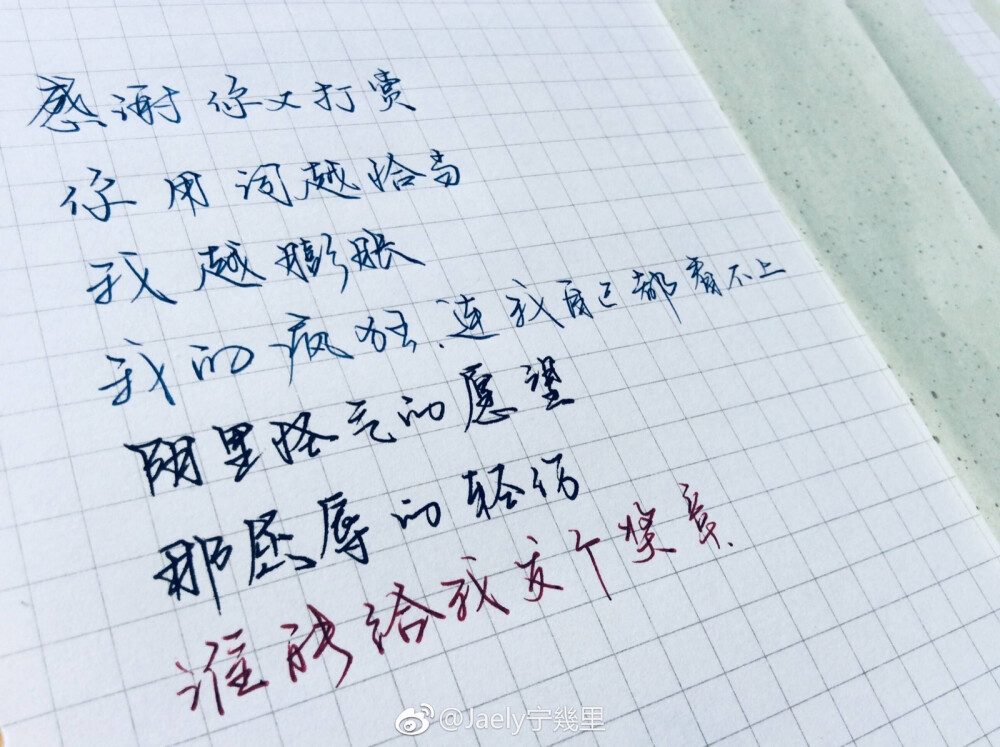 感谢你又打赏
你用词越恰当
我越膨胀
我的疯狂.连我自己都看不上
阴里怪气的愿望
那屈辱的轻伤
谁能给我发个奖章.
@Jaely宁幾里